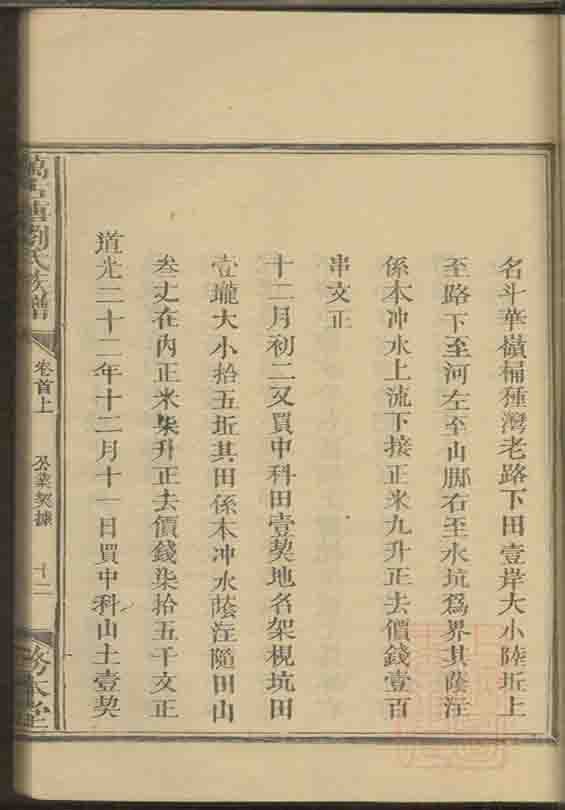 名斗華嶺桶種灣老路下田壹岸大小陸坵上
至路下至河左至山腳右至水坑爲界其蔭注
係本冲水上流下接正米九升正去價錢壹百
串文正
十二月初二又買中科田壹契地名架梘坑田
壹壠大小拾五坵其田係本冲水蔭注隨田山
叁丈在內正米柒升正去價錢柒拾五千文正
道光二十二年十二月十一日買中科山土壹契
劉氏族譜
卷首上
公業契據
十二